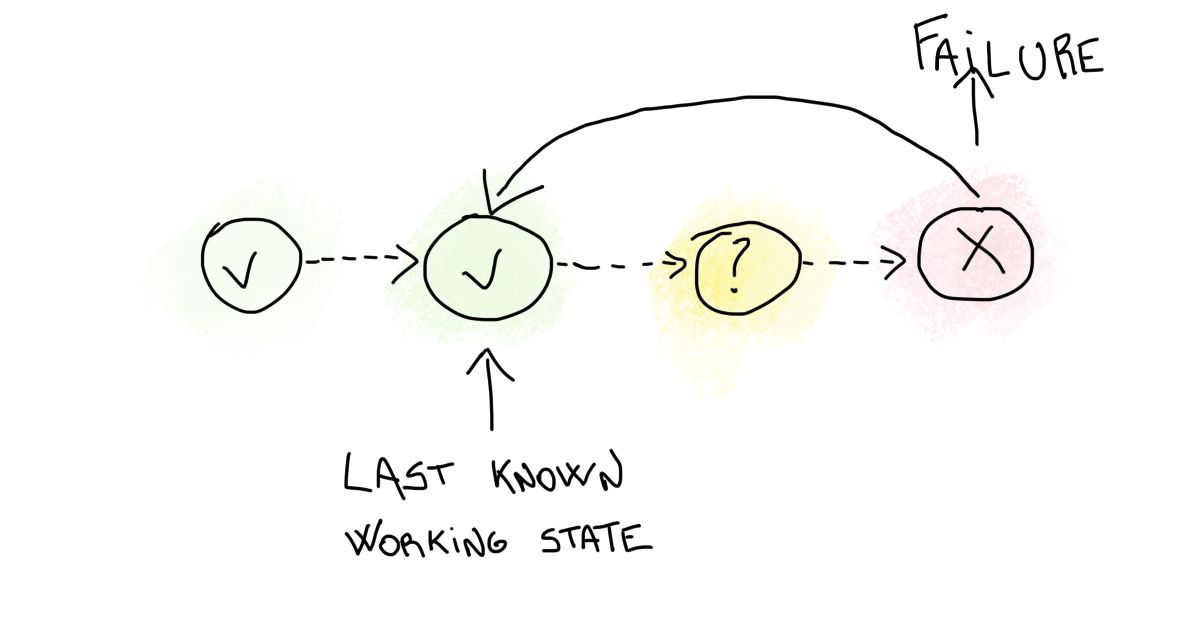 FAiLURE
?
LAST KNOWN
WORKiNG STATE